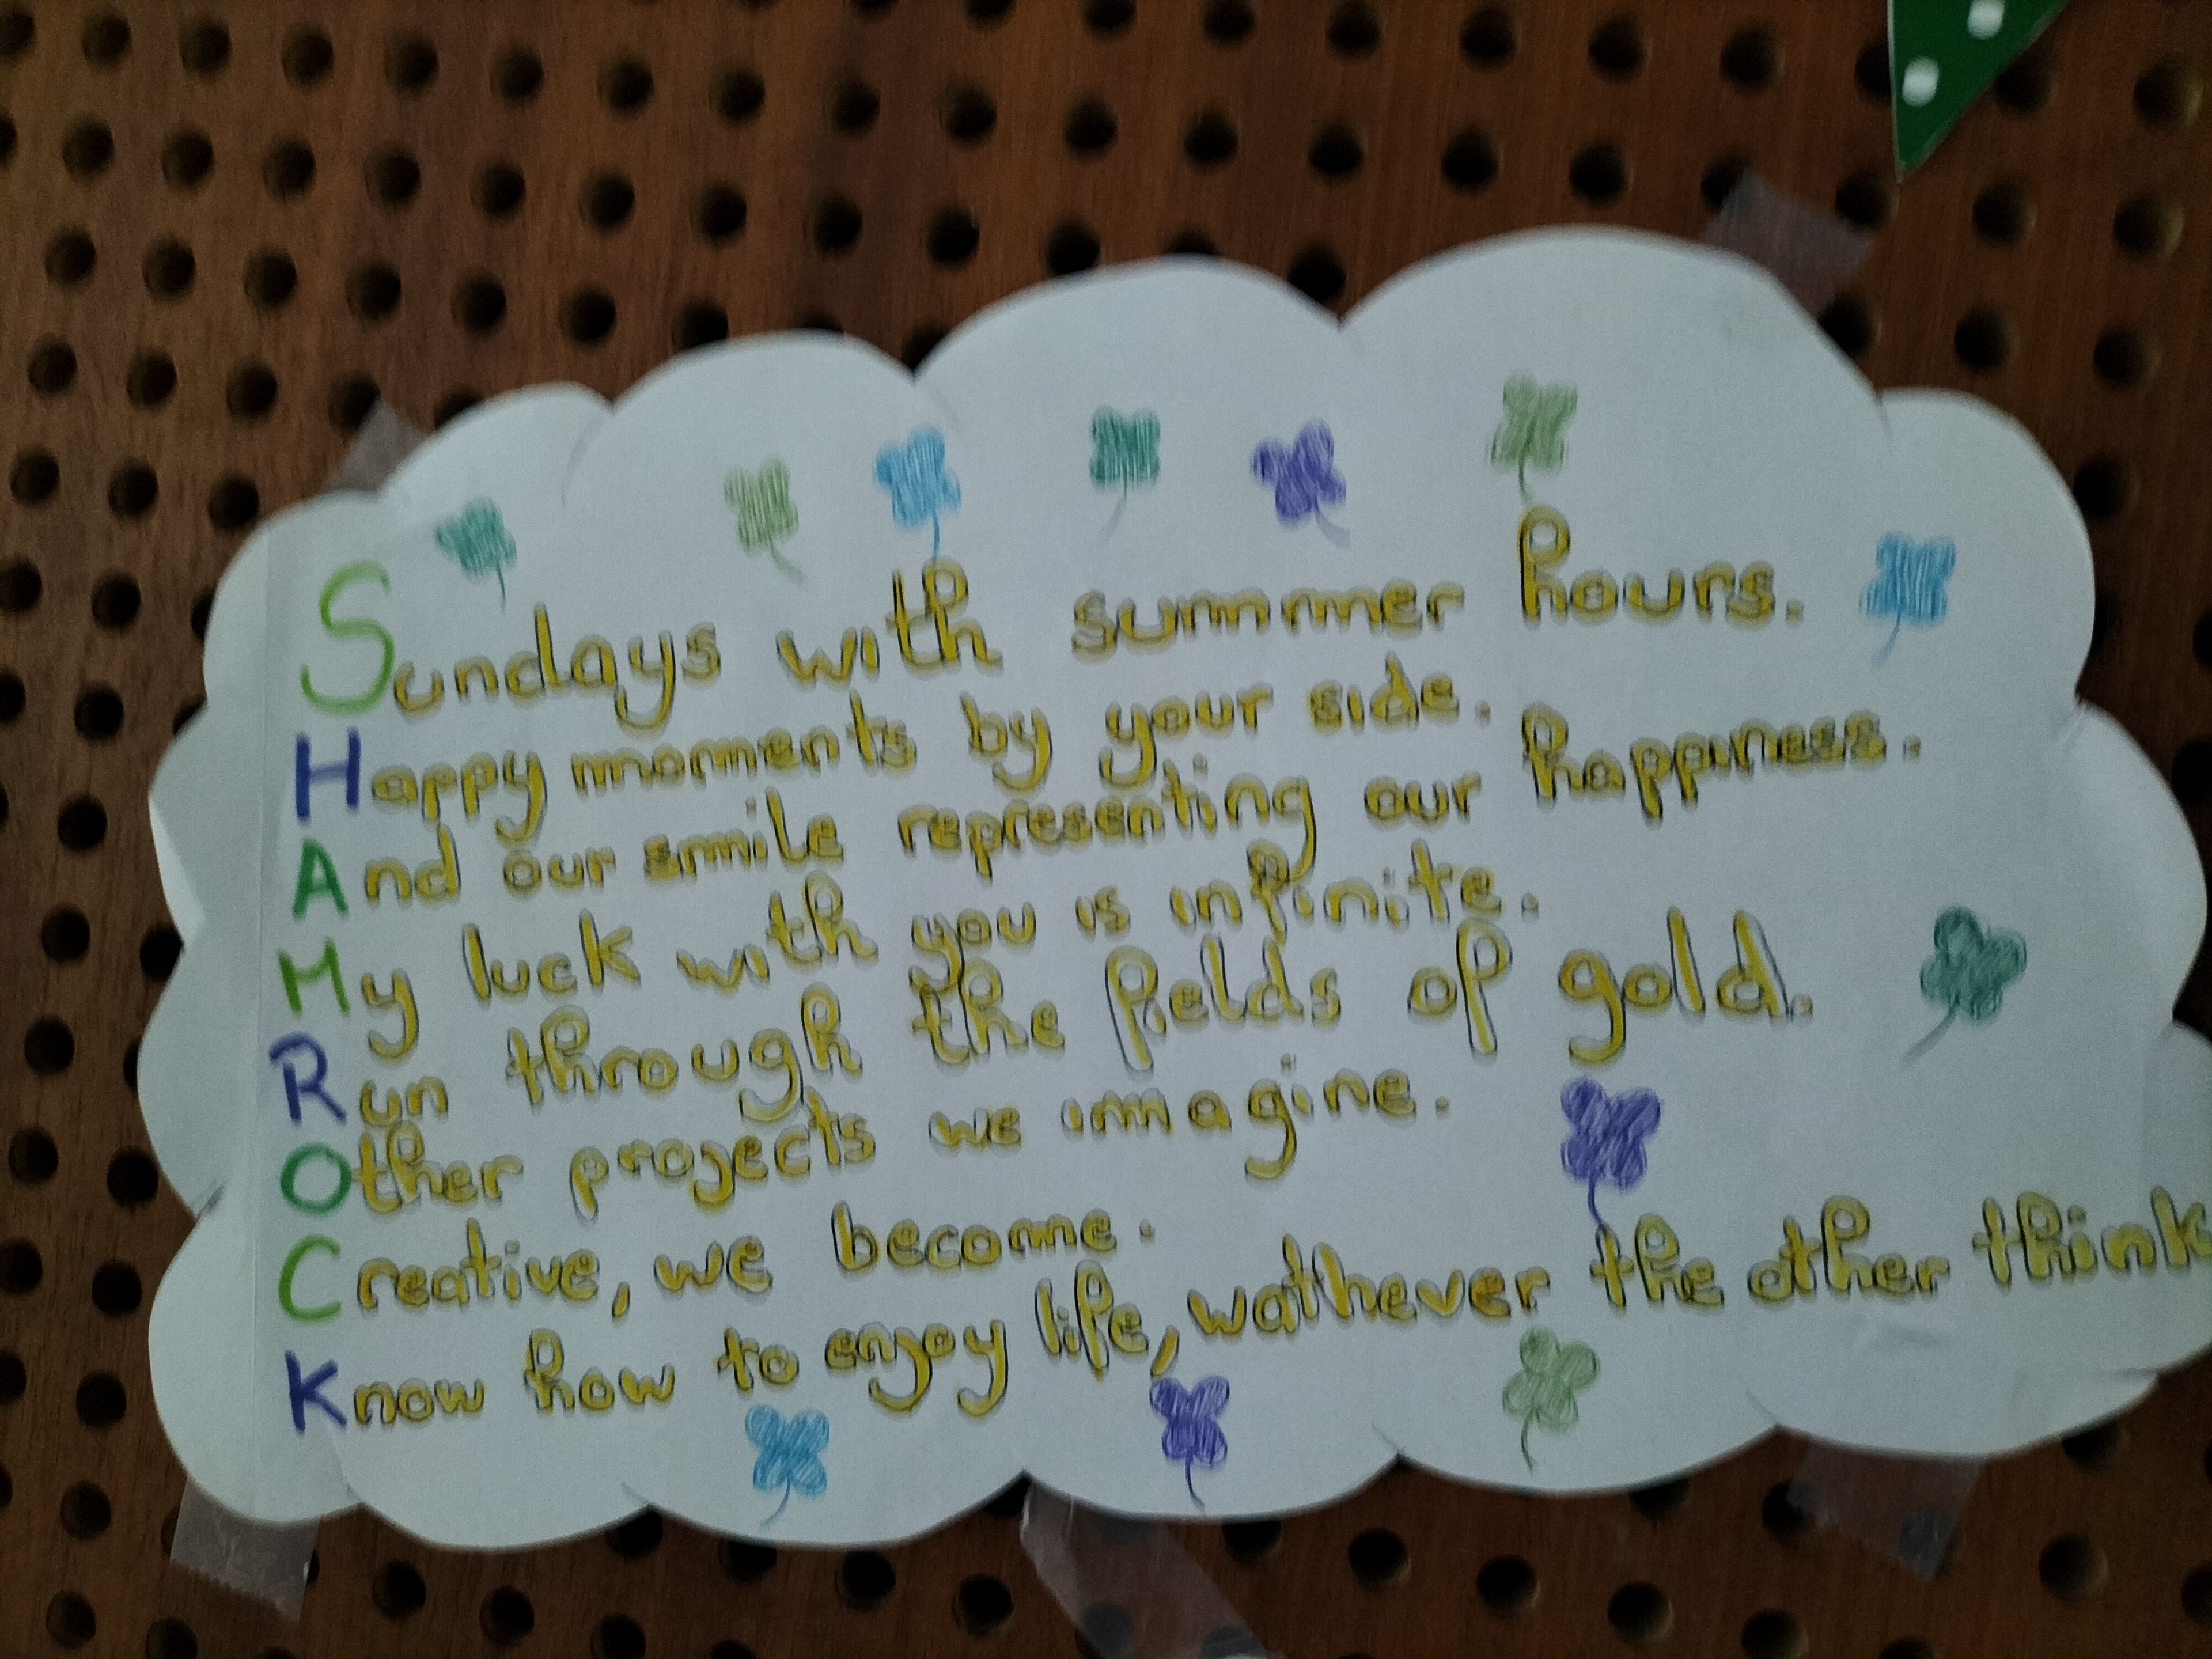 Sundays with summer hours.
Happy moments by your side.
And our smile representing our happiness.
My luck with you is infinite.
Run through the fields of gold.
Other projects we imagine.
Creative, we become.
Know how to enjoy life, wathever the other think